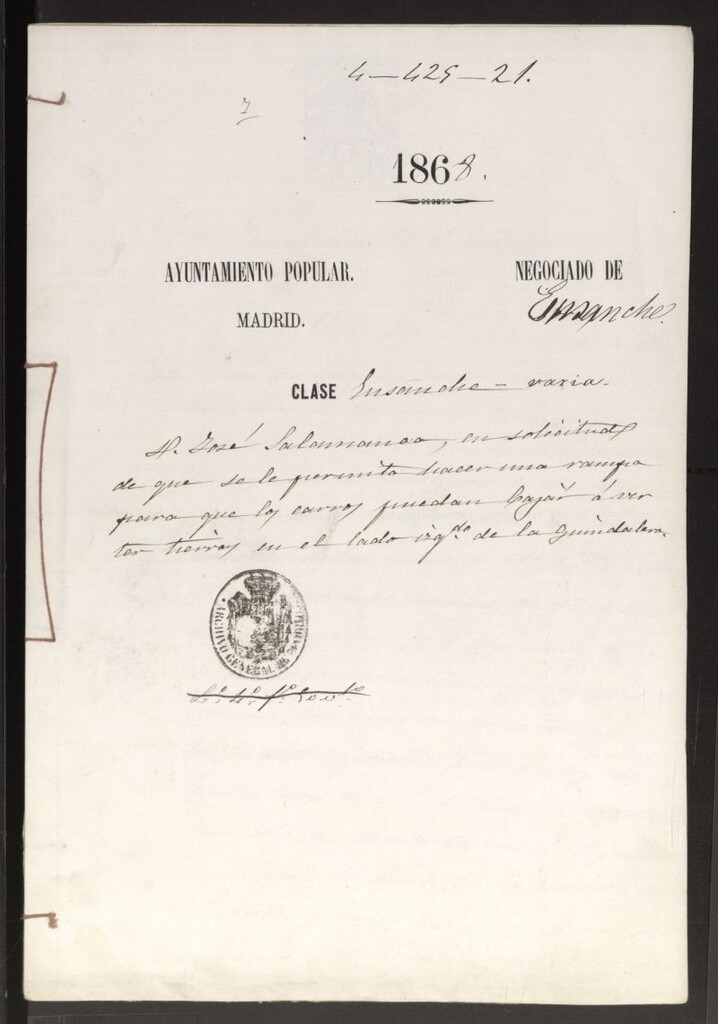 4-429-21.
7
1868.
AYUNTAMIENTO POPULAR.
MADRID.
NEGOCIADO DE
Ensanche.
CLASE Ensanche - varia.
D. José Salamanca, en solicitud
de que se le permita hacer una rampa
para que los carros puedan bajar á ver
ter tierras en el lado izqdo de la Guindalera.
ARCHIVO GENERAL DE